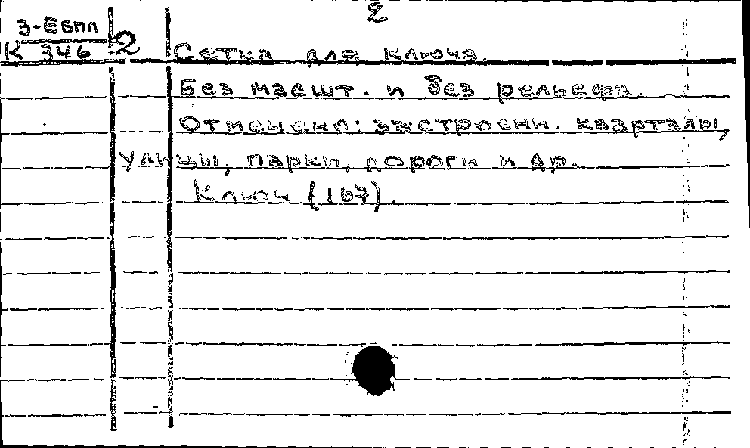 2
З-ЕвПЛ
К 346 2 Сетка для ключа.
Без масшт. и без рельефа.
Отмечено: застроенн. кварталы,
улицы, парки, дороги и др.
Ключ (167).